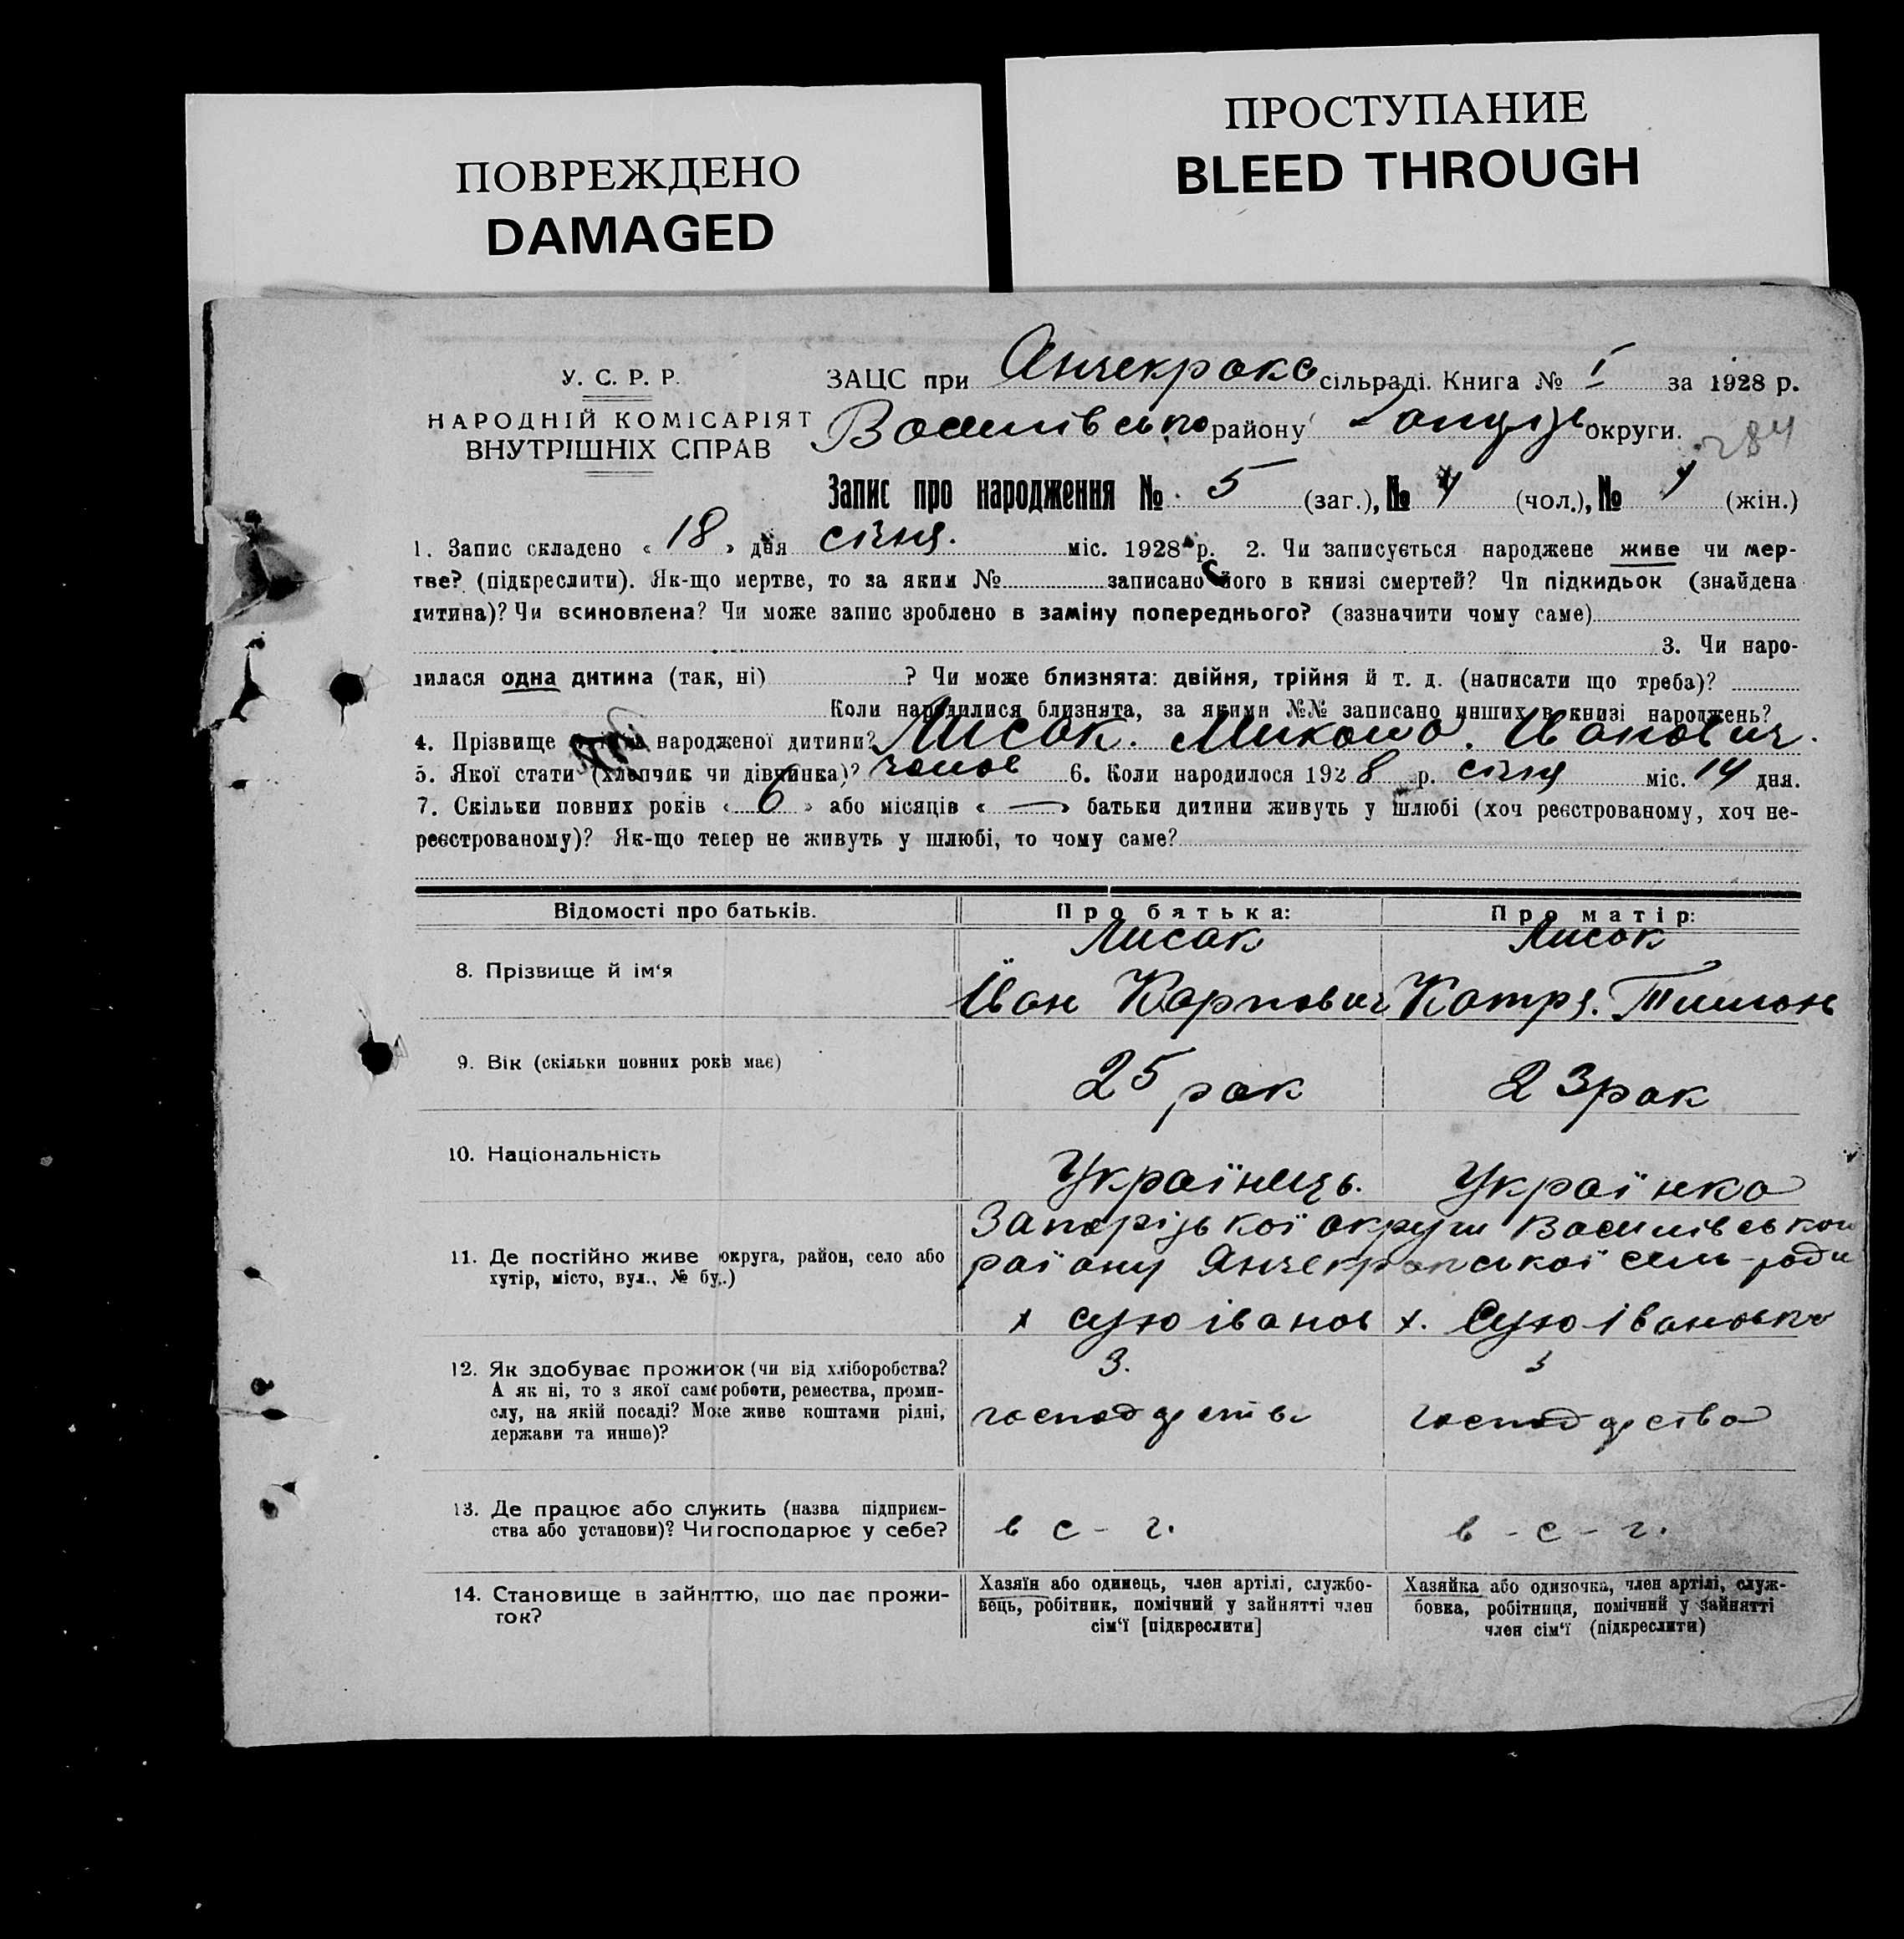 ПОВРЕЖДЕНО
DAMAGED
ПРОСТУПАНИЕ
BLEED THROUGH
У. С. Р. Р.
НАРОДНІЙ КОМІСАРІЯТ
ВНУТРІШНІХ СПРАВ
ЗАЦС при Анчекрака сільраді. Книга № I за 1928 р.
Василівсько району округи.
284
Запис про народження № 5 (заг.), № 4 (чол.), № (жін.)
1. Запис складено « 18 » дня січня. міс. 1928 р. 2. Чи записується народжене живе чи мер-
тве? (підкреслити). Як-що мертве, то за яким № записано його в книзі смертей? Чи підкидьок (знайдена
дитина)? Чи всиновлена? Чи може запис зроблено в заміну попереднього? (зазначити чому саме)
3. Чи наро-
дилася одна дитина (так, ні) ? Чи може близнята: двійня, трійня й т. д. (написати що треба)?
Коли народилися близнята, за якими №№ записано инших в книзі народжень?
4. Прізвище народженої дитини? Лисак. Микола. Іванович.
5. Якої стати (хлопчик чи дівчинка)? чолов 6. Коли народилося 1928 р. січня міс. 14 дня.
7. Скільки повних років « 6 » або місяців « — » батьки дитини живуть у шлюбі (хоч реєстрованому, хоч не-
реєстрованому)? Як-що тепер не живуть у шлюбі, то чому саме?
Відомості про батьків. Про батька: Про матір:
Лисак Лисак
8. Прізвище й ім'я
Іван Карпович Катря. Тимош
9. Вік (скільки повних років має)
25 рок 23 рок
10. Національність
Українець. Українка
Запорізької округи Василівськои
11. Де постійно живе округа, район, село або
раіону Янчекракської сель-ради
хутір, місто, вул., № бу..)
х Сухоіванов х. Сухо-Івановсько
12. Як здобуває прожиток (чи від хліборобства?
3. 3
А як ні, то з якої саме роботи, ремества, проми-
слу, на якій посаді? Може живе коштами рідні,
господарства господарства
держави та инше)?
13. Де працює або служить (назва підприєм-
ства або установи)? Чи господарює у себе?
в с - г. в - с - г.
14. Становище в зайняттю, що дає прожи-
ток?
Хазяїн або одинець, член артілі, службо-
вець, робітник, помічний у зайнятті член
сім'ї [підкреслити]
Хазяйка або одиночка, член артілі, служ-
бовка, робітниця, помічний у зайнятті
член сім'ї (підкреслити)